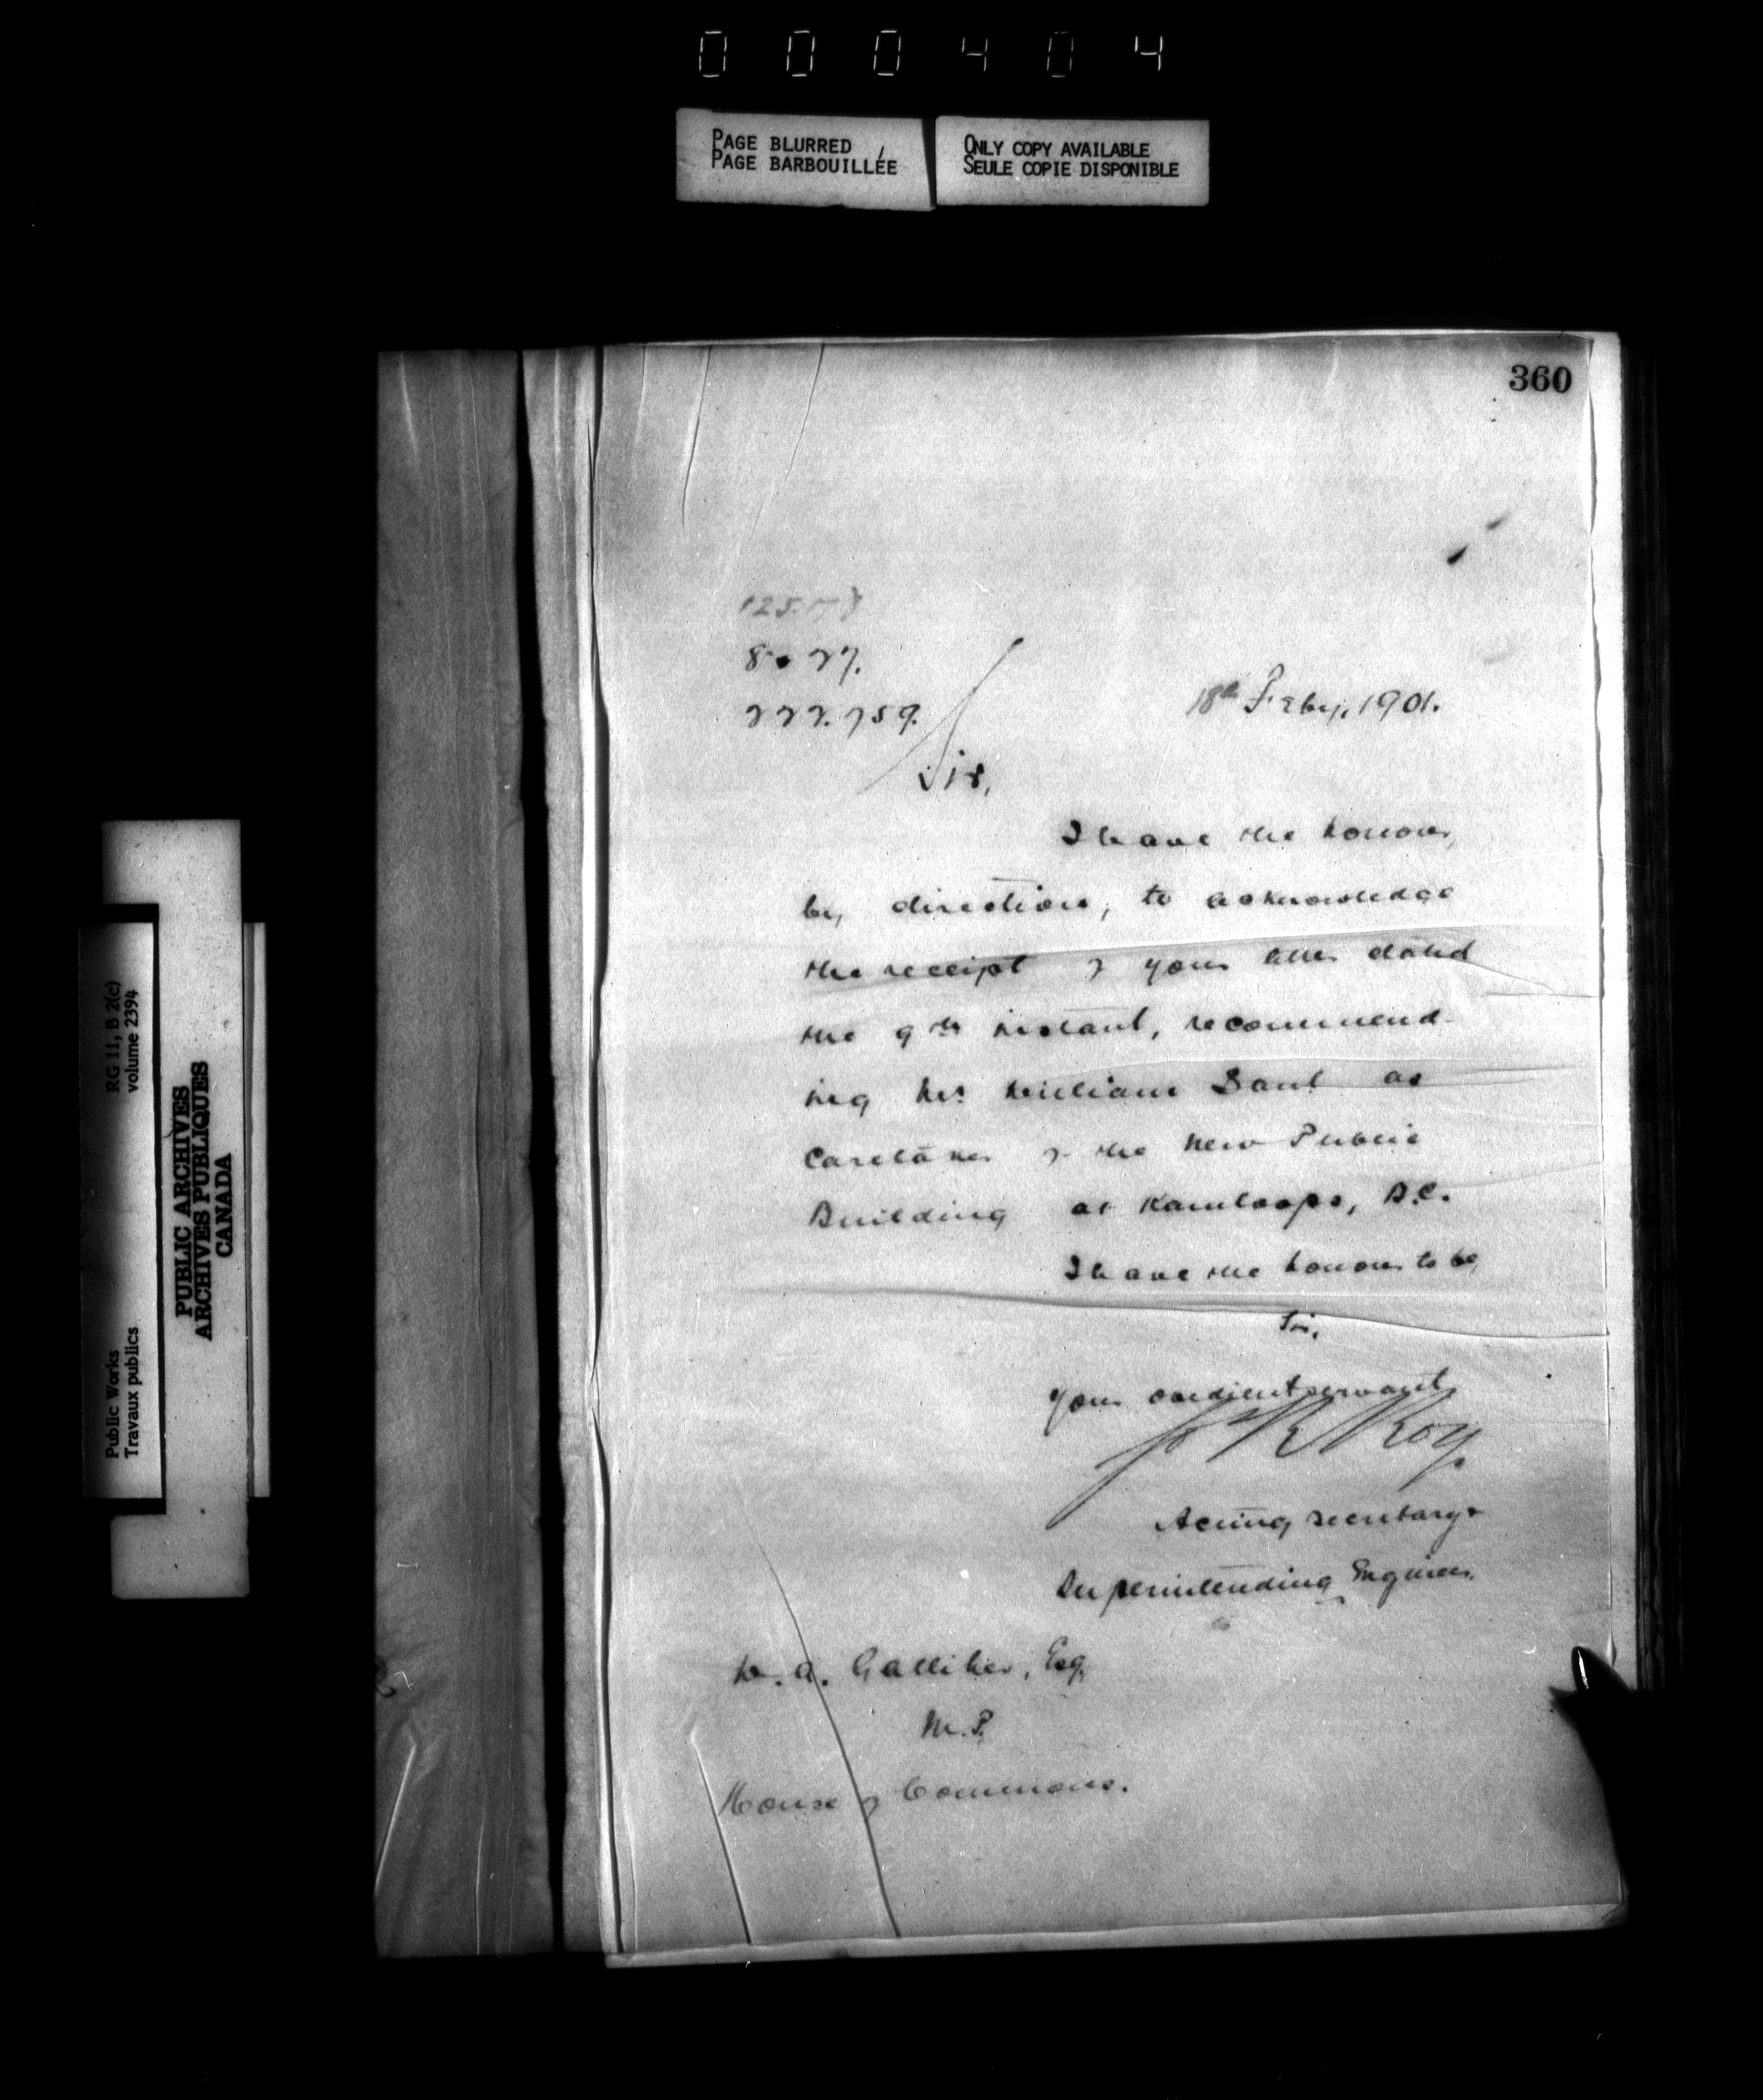 000404
PAGE BLURRED
PAGE BARBOUILLÉE
ONLY COPY AVAILABLE
SEULE COPIE DISPONIBLE
360
222.759.
18th Feby, 1901.
Sir,
I have the honour,
by direction, to acknowledge
the receipt of your letter dated
the 9th instant, recommend-
ing Mr William as
Caretaker of the New Public
Building at Kamloops, B.C.
I have the honour to be,
Sir,
Your obedient servant
Roy
Acting Secretary &
Superintending Engineer.
W. A. Galliher, Esq.
M.P.
House of Commons.
RG 11, B 2(c)
volume 2394
Public Works
Travaux publics
PUBLIC ARCHIVES
ARCHIVES PUBLIQUES
CANADA